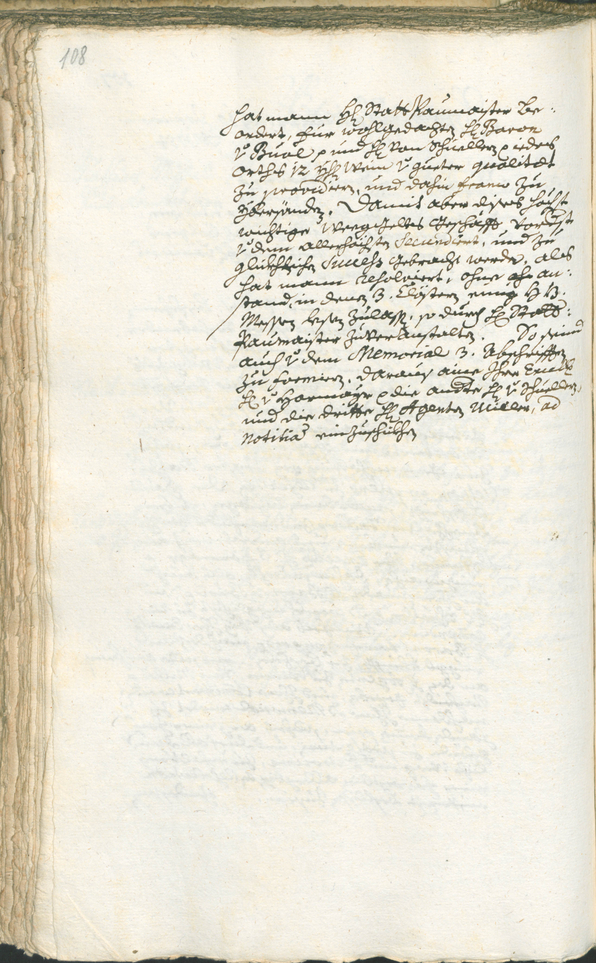 108
hat mann H: Statt Paumaister be:
ordert, für wohlgedachten H: Baron
v Buol p und H: von Schuellern p iedes
Orths 12 Yhr: Wein v: gueter qualitet
zu provideren, und dahin franco zu
ybersenden. Damit aber dises höchst
wichtige Weeggelts Geschäfft, vorderst
v dem allerhöchsten Secundiert, und zu
glükhlichen Success gebracht werde, als
hat mann resolviert, ohne an:
stand, in denen 3. Clöstern einige H H:
Messen lesen zulassen, so durch H: Statt:
Paumaister zuveranstalten. So seind
auch v dem Memorial 3. Abschrifften
zu formiern, daraus aine Ihro Excell:
H: v Hormayr p die andte H: v Schuellern,
und die dritte H: Agenten Müller, ad
notitiam einzuschikhen